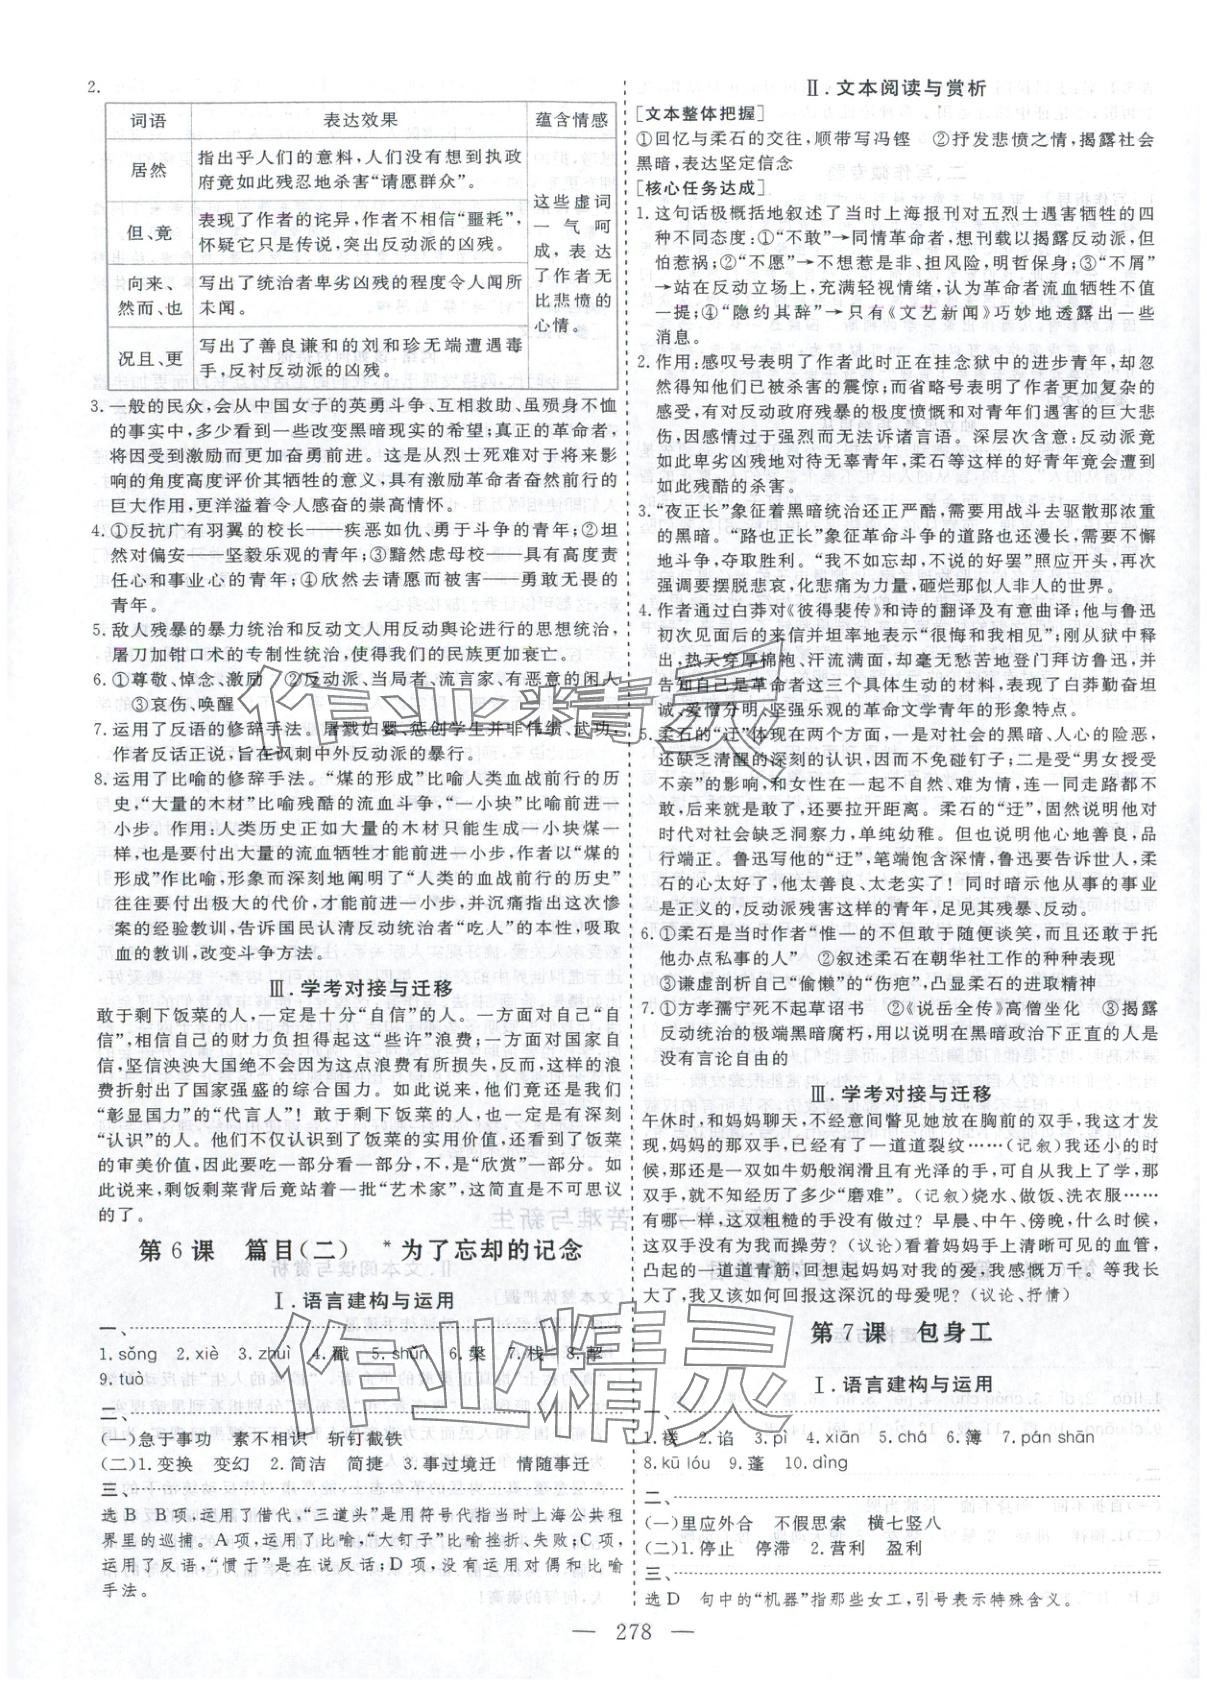 2.
词语 表达效果 蕴含情感
居然 指出乎人们的意料,人们没有想到执政府竟如此残忍地杀害“请愿群众”。
但、竟 表现了作者的诧异,作者不相信“噩耗”,怀疑它只是传说,突出反动派的凶残。
向来、然而、也 写出了统治者卑劣凶残的程度令人闻所未闻。
况且、更 写出了善良谦和的刘和珍无端遭遇毒手,反衬反动派的凶残。
这些虚词一气呵成,表达了作者无比悲愤的心情。
3. 一般的民众,会从中国女子的英勇斗争、互相救助、虽殒身不恤
的事实中,多少看到一些改变黑暗现实的希望;真正的革命者,
将因受到激励而更加奋勇前进。这是从烈士死难对于将来影
响的角度高度评价其牺牲的意义,具有激励革命者奋然前行的
巨大作用,更洋溢着令人感奋的崇高情怀。
4. ①反抗广有羽翼的校长——疾恶如仇、勇于斗争的青年;②坦
然对偏安——坚毅乐观的青年;③黯然虑母校——具有高度责
任心和事业心的青年;④欣然去请愿而被害——勇敢无畏的
青年。
5. 敌人残暴的暴力统治和反动文人用反动舆论进行的思想统治,
屠刀加钳口术的专制性统治,使得我们的民族更加衰亡。
6. ①尊敬、悼念、激励 ②反动派、当局者、流言家、有恶意的闲人
③哀伤、唤醒
7. 运用了反语的修辞手法。屠戮妇婴、惩创学生并非伟绩、武功,
作者反话正说,旨在讽刺中外反动派的暴行。
8. 运用了比喻的修辞手法。“煤的形成”比喻人类血战前行的历
史,“大量的木材”比喻残酷的流血斗争,“一小块”比喻前进一
小步。作用:人类历史正如大量的木材只能生成一小块煤一
样,也是要付出大量的流血牺牲才能前进一小步,作者以“煤的
形成”作比喻,形象而深刻地阐明了“人类的血战前行的历史”
往往要付出极大的代价,才能前进一小步,并沉痛指出这次惨
案的经验教训,告诉国民认清反动统治者“吃人”的本性,吸取
血的教训,改变斗争方法。
Ⅲ.学考对接与迁移
敢于剩下饭菜的人,一定是十分“自信”的人。一方面对自己“自
信”,相信自己的财力负担得起这“些许”浪费;一方面对国家自
信,坚信泱泱大国绝不会因为这点浪费有所损失,反而,这样的浪
费折射出了国家强盛的综合国力。如此说来,他们竟不是我们
“彰显国力”的“代言人”!敢于剩下饭菜的人,也一定是有深刻
“认识”的人。他们不仅认识到了饭菜的实用价值,还看到了饭菜
的审美价值,因此要吃一部分看一部分,不,是“欣赏”一部分。如
此说来,剩饭剩菜背后竟站着一批“艺术家”,这简直是不可思议
的了。
第6课 篇目(二) *为了忘却的记念
Ⅰ.语言建构与运用
一、
1. sǒng 2. xiè 3. zhuì 4. 戳 5. shǔn 6. 槃 7. 栈 8. 掣
9. tuò
二、
(一)急于事功 素不相识 斩钉截铁
(二)1. 变换 变幻 2. 简洁 简捷 3. 事过境迁 情随事迁
三、
选B B项,运用了借代,“三道头”是用符号代指当时上海公共租
界里的巡捕。A项,运用了比喻,“大钉子”比喻挫折、失败;C项,
运用了反语,“惯于”是在说反话;D项,没有运用对偶和比喻
手法。
Ⅱ.文本阅读与赏析
[文本整体把握]
①回忆与柔石的交往,顺带写冯铿 ②抒发悲愤之情,揭露社会
黑暗,表达坚定信念
[核心任务达成]
1. 这句话极概括地叙述了当时上海报刊对五烈士遇害牺牲的四
种不同态度:①“不敢”→同情革命者,想刊载以揭露反动派,但
怕惹祸;②“不愿”→不想惹是非、担风险,明哲保身;③“不屑”
→站在反动立场上,充满轻视情绪,认为革命者流血牺牲不值
一提;④“隐约其辞”→只有《文艺新闻》巧妙地透露出一些
消息。
2. 作用:感叹号表明了作者此时正在挂念狱中的进步青年,却忽
然得知他们已被杀害的震惊;而省略号表明了作者更加复杂的
感受,有对反动政府残暴的极度愤慨和对青年们遇害的巨大悲
伤,因感情过于强烈而无法诉诸言语。深层次含意:反动派竟
如此卑劣凶残地对待无辜青年,柔石等这样的好青年竟会遭到
如此残酷的杀害。
3. “夜正长”象征着黑暗统治还正严酷,需要用战斗去驱散那浓重
的黑暗。“路也正长”象征革命斗争的道路也还漫长,需要不懈
地斗争,夺取胜利。“我不如忘却,不说的好罢”照应开头,再次
强调要摆脱悲哀,化悲痛为力量,砸烂那似人非人的世界。
4. 作者通过白莽对《彼得裴传》和诗的翻译及有意曲译;他与鲁迅
初次见面后的来信并坦率地表示“很悔和我相见”;刚从狱中释
出来,热天穿厚棉袍、汗流满面,却毫无愁苦地登门拜访鲁迅,并
告知自己是革命者这三个具体生动的材料,表现了白莽勤奋坦
诚,爱憎分明,坚强乐观的革命文学青年的形象特点。
5. 柔石的“迂”体现在两个方面,一是对社会的黑暗、人心的险恶,
还缺乏清醒的深刻的认识,因而不免碰钉子;二是受“男女授受
不亲”的影响,和女性在一起不自然、难为情,连一同走路都不
敢,就是敢了,还要拉开距离。柔石的“迂”,固然说明他对
时代对社会缺乏洞察力,单纯幼稚。但也说明他心地善良,品
行端正。鲁迅写他的“迂”,笔端饱含深情,鲁迅要告诉世人,柔
石的心太好了,他太善良、太老实了!同时暗示他从事的事业
是正义的,反动派残害这样的青年,足见其残暴、反动。
6. ①柔石是当时作者“惟一的不但敢于随便谈笑,而且还敢于托
他办点私事的人” ②叙述柔石在朝华社工作的种种表现
③谦虚剖析自己“偷懒”的“伤疤”,凸显柔石的进取精神
7. ①方孝孺宁死不起草诏书 ②《说岳全传》高僧坐化 ③揭露
反动统治的极端黑暗腐朽,用以说明在黑暗政治下正直的人是
没有言论自由的
Ⅲ.学考对接与迁移
午休时,和妈妈聊天,不经意间瞥见她放在胸前的双手,我这才发
现,妈妈的那双手,已经有了一道道裂纹……(记叙)我还小的时
候,那还是一双如牛奶般润滑且有光泽的手,可自从我上了学,那
双手,就已不知经历了多少“磨难”。(记叙)烧水、做饭、洗衣服……
有哪一样,这双粗糙的手没有做过?早晨、中午、傍晚,什么时候,
这双手没有为我而操劳?(议论)看着妈妈手上清晰可见的血管,
凸起的一道道青筋,回想起妈妈对我的爱,我感慨万千。等我长
大了,我又该如何回报这深沉的母爱呢?(议论、抒情)
第7课 包身工
Ⅰ.语言建构与运用
一、
1. 褛 2. 谄 3. pì 4. xiān 5. chá 6. 簿 7. pán shān
8. kū lóu 9. 蓬 10. dìng
二、
(一)里应外合 不假思索 横七竖八
(二)1. 停止 停滞 2. 营利 盈利
三、
选D 句中的“机器”指那些女工,引号表示特殊含义。
— 278 —
作业精灵
作业精灵